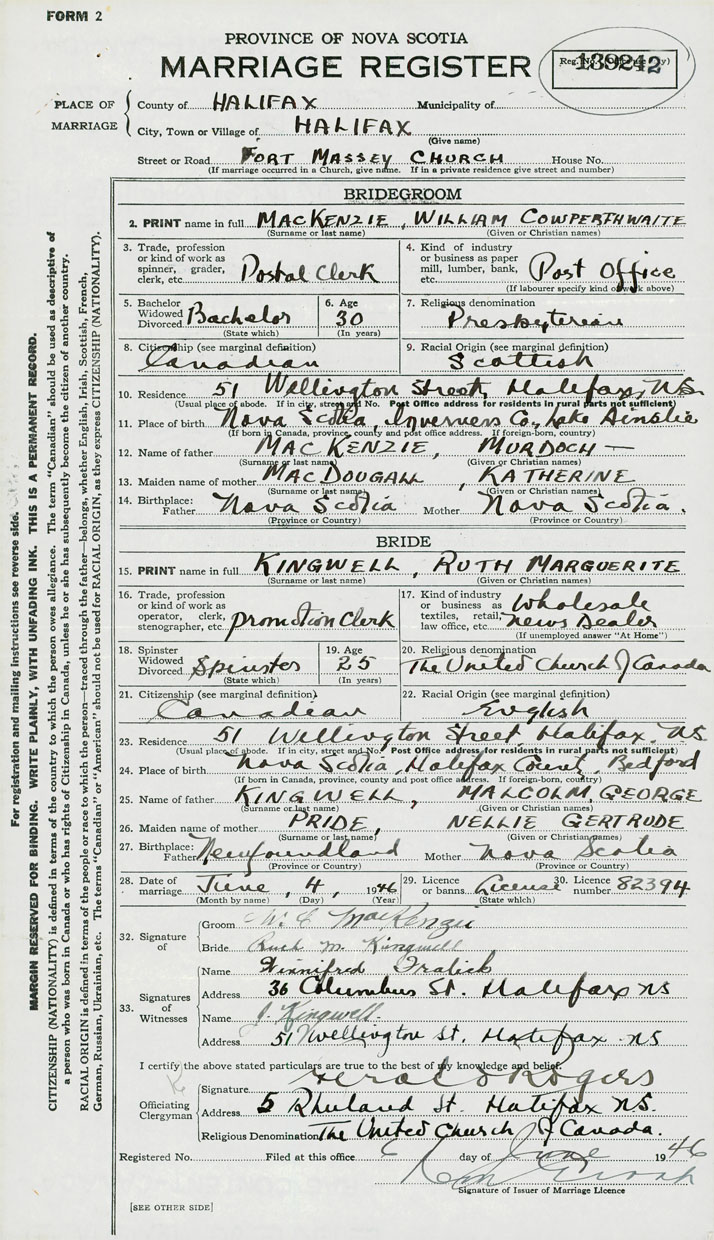 FORM 2
PROVINCE OF NOVA SCOTIA
MARRIAGE REGISTER
Reg. No.
PLACE OF MARRIAGE
County of HALIFAX Municipality of
City, Town or Village of HALIFAX
(Give name)
Street or Road FORT MASSEY CHURCH House No.
(If marriage occurred in a Church, give name. If in a private residence give street and number)
BRIDEGROOM
2. PRINT name in full MACKENZIE, WILLIAM COWPERTHWAITE
(Surname or last name) (Given or Christian names)
3. Trade, profession or kind of work as spinner, grader, clerk, etc. Postal Clerk
4. Kind of industry or business as paper mill, lumber, bank, etc. Post Office
(If labourer specify kind of work above)
5. Bachelor Widowed Divorced Bachelor
(State which)
6. Age 30
(In years)
7. Religious denomination
Presbyterian
8. Citizenship (see marginal definition)
Canadian
9. Racial Origin (see marginal definition)
Scottish
10. Residence 51 Wellington Street, Halifax, N.S.
(Usual place of abode. If in city, street and No. Post Office address for residents in rural parts not sufficient)
11. Place of birth Nova Scotia, Inverness Co., Lake Ainslie
(If born in Canada, province, county and post office address. If foreign-born, country)
12. Name of father MACKENZIE, MURDOCH —
(Surname or last name) (Given or Christian names)
13. Maiden name of mother MACDOUGALL, KATHERINE
(Surname or last name) (Given or Christian names)
14. Birthplace: Father Nova Scotia Mother Nova Scotia.
(Province or Country) (Province or Country)
BRIDE
15. PRINT name in full KINGWELL, RUTH MARGUERITE
(Surname or last name) (Given or Christian names)
16. Trade, profession or kind of work as operator, clerk, stenographer, etc. promotion Clerk
17. Kind of industry or business as textiles, retail, law office, etc. Wholesale News Dealer
(If unemployed answer "At Home")
18. Spinster Widowed Divorced Spinster
(State which)
19. Age 25
(In years)
20. Religious denomination
The United Church of Canada
21. Citizenship (see marginal definition)
Canadian
22. Racial Origin (see marginal definition)
English
23. Residence 51 Wellington Street Halifax, N.S.
(Usual place of abode. If in city, street and No. Post Office address for residents in rural parts not sufficient)
24. Place of birth Nova Scotia, Halifax County, Bedford
(If born in Canada, province, county and post office address. If foreign-born, country)
25. Name of father KINGWELL, MALCOLM, GEORGE
(Surname or last name) (Given or Christian names)
26. Maiden name of mother PRIDE, NELLIE GERTRUDE
(Surname or last name) (Given or Christian names)
27. Birthplace: Father Newfoundland Mother Nova Scotia
(Province or Country) (Province or Country)
28. Date of marriage June, 4, 1946
(Month by name) (Day) (Year)
29. Licence or banns License
(State which)
30. Licence number 82394
32. Signature of
Groom W. C. MacKenzie
Bride Ruth M. Kingwell
33. Signatures of Witnesses
Name Winnifred Fralick
Address 36 Columbus St. Halifax NS
Name J. Kingwell.
Address 51 Wellington St. Halifax NS
I certify the above stated particulars are true to the best of my knowledge and belief.
Officiating Clergyman
Signature Gerald Rogers
Address 5 Rhuland St. Halifax N.S.
Religious Denomination The United Church of Canada.
Registered No. Filed at this office 6 day of June 1946
Signature of Issuer of Marriage Licence
[SEE OTHER SIDE]
For registration and mailing instructions see reverse side.
MARGIN RESERVED FOR BINDING. WRITE PLAINLY, WITH UNFADING INK. THIS IS A PERMANENT RECORD.
CITIZENSHIP (NATIONALITY) is defined in terms of the country to which the person owes allegiance. The term "Canadian" should be used as descriptive of
a person who was born in Canada or who has rights of Citizenship in Canada, unless he or she has subsequently become the citizen of another country.
RACIAL ORIGIN is defined in terms of the people or race to which the person—traced through the father—belongs, whether English, Irish, Scottish, French,
German, Russian, Ukrainian, etc. The terms "Canadian" or "American" should not be used for RACIAL ORIGIN, as they express CITIZENSHIP (NATIONALITY).